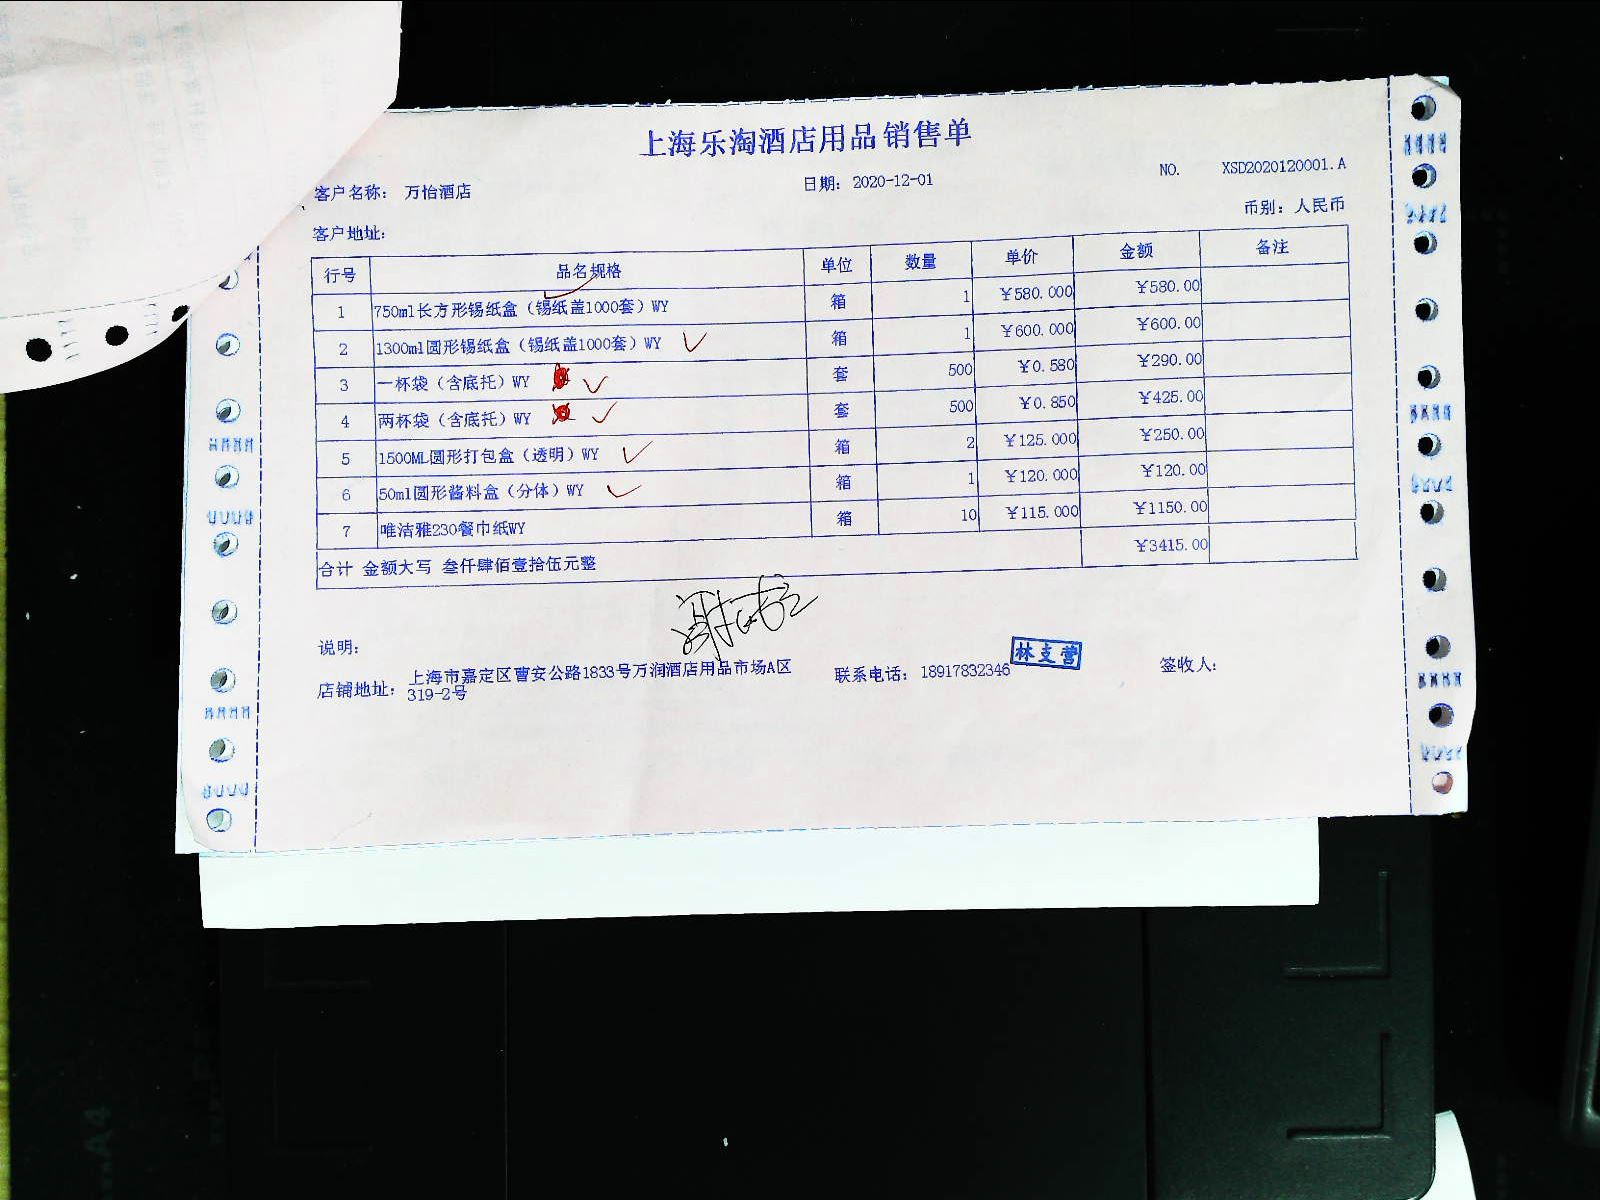 上海乐淘酒店用品销售单
客户名称： 万怡酒店 日期：2020-12-01 NO. XSD2020120001.A
客户地址： 币别：人民币
行号 品名规格 单位 数量 单价 金额 备注
1 750ml长方形锡纸盒（锡纸盖1000套）WY 箱 1 ¥580.000 ¥580.00
2 1300ml圆形锡纸盒（锡纸盖1000套）WY 箱 1 ¥600.000 ¥600.00
3 一杯袋（含底托）WY 套 500 ¥0.580 ¥290.00
4 两杯袋（含底托）WY 套 500 ¥0.850 ¥425.00
5 1500ML圆形打包盒（透明）WY 箱 2 ¥125.000 ¥250.00
6 50ml圆形酱料盒（分体）WY 箱 1 ¥120.000 ¥120.00
7 唯洁雅230餐巾纸WY 箱 10 ¥115.000 ¥1150.00
合计 金额大写 叁仟肆佰壹拾伍元整 ¥3415.00
说明：
店铺地址： 上海市嘉定区曹安公路1833号万润酒店用品市场A区 联系电话：18917832346 林支营 签收人：
319-2号
A4